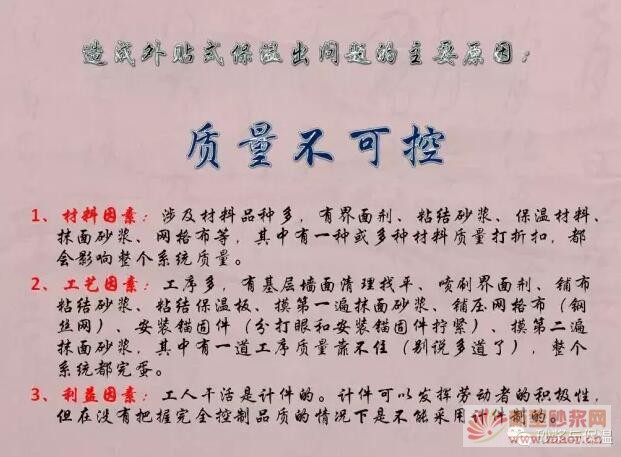 造成外贴式保温出问题的主要原因：
质量不可控
1、材料因素：涉及材料品种多，有界面剂、粘结砂浆、保温材料、
抹面砂浆、网格布等，其中有一种或多种材料质量打折扣，都
会影响整个系统质量。
2、工艺因素：工序多，有基层墙面清理找平、喷刷界面剂、铺布
粘结砂浆、粘结保温板、摸第一遍抹面砂浆、铺压网格布（钢
丝网）、安装锚固件（分打眼和安装锚固件拧紧）、摸第二遍
抹面砂浆，其中有一道工序质量靠不住（别说多道了），整个
系统都完蛋。
3、利益因素：工人干活是计件的。计件可以发挥劳动者的积极性，
但在没有把握完全控制品质的情况下是不能采用计件制的。
砂浆与保温